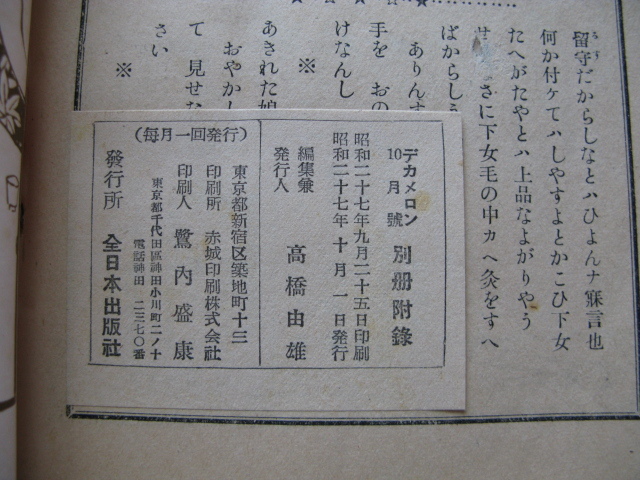 留守だからしなとハひよんナ寐言也
何か付ケてハしやすよとかこひ下女
たへがたやとハ上品なよがりやう
さに下女毛の中カへ灸をすへ
ばからしう
ありんす
手を おの
けなんし
※
あきれた娘
おやかし
て 見せな
さい
※
デカメロン
10月號
別册附錄
昭和二十七年九月二十五日印刷
昭和二十七年十月一日発行
編集兼
発行人
高橋由雄
東京都新宿区築地町十三
印刷所 赤城印刷株式会社
印刷人 鷺内盛康
東京都千代田區神田小川町二ノ十
電話神田 二三七〇番
發行所 全日本出版社
(每月一回発行)